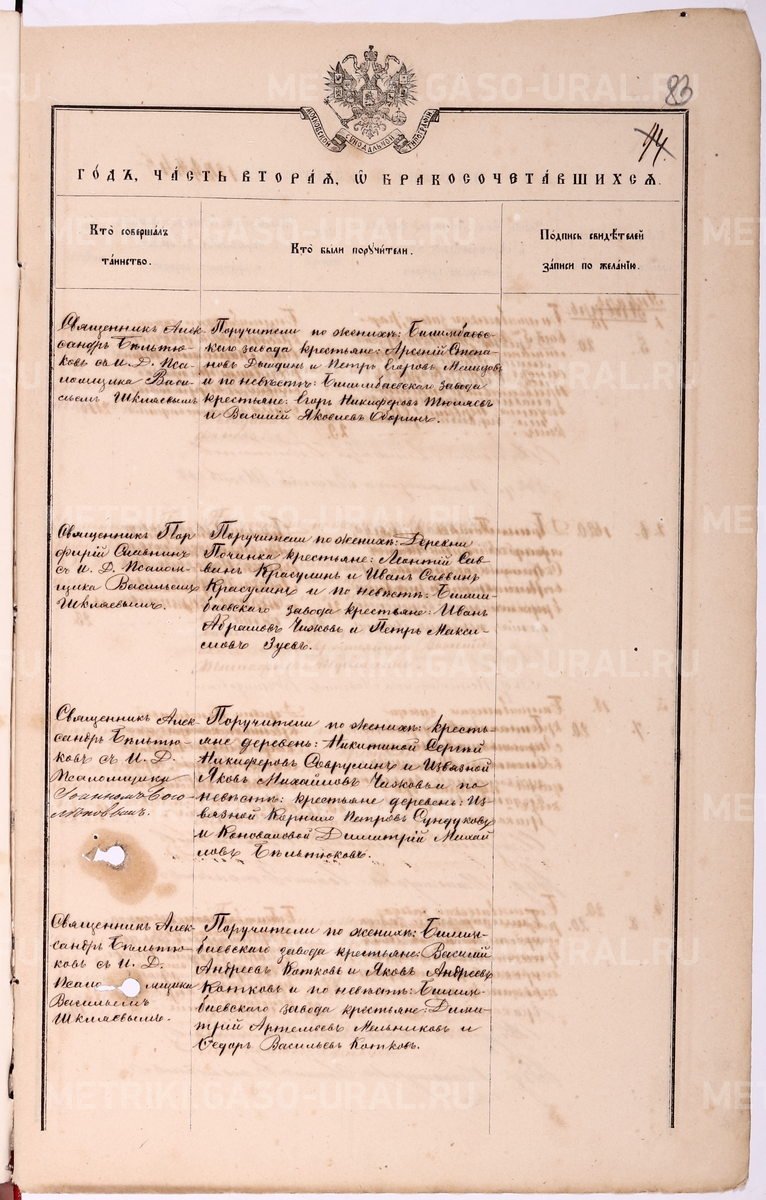 83
44.
МОСКОВСКОЙ СѴНОДАЛЬНОЙ ТИПОГРАФІИ
ГОДЪ, ЧАСТЬ ВТОРАЯ, Ѡ БРАКОСОЧЕТАВШИХСЯ.
Кто совершалъ
таинство.
Кто были поручители.
Подпись свидѣтелей
записи по желанію.
Священникъ Алек-
сандръ Бѣльтю-
ковъ съ И. Д. Пса-
ломщика Васи-
льемъ Шкляевымъ
Поручители по женихѣ: Билимбаевс-
каго завода крестьяне: Арсеній Степа-
новъ Дылдинъ и Петръ Егоровъ
и по невѣстѣ: Билимбаевскаго завода
крестьяне: Егоръ Никифоровъ Тюляевъ
и Василій Яковлевъ Оборинъ.
Священникъ Пор-
фирій Славнинъ
съ И. Д. Псалом-
щика Васильемъ
Шкляевымъ.
Поручители по женихѣ: Деревни
Починка крестьяне: Леонтій Сав-
винъ Красулинъ и Иванъ Саввинъ
Красулинъ и по невѣстѣ: Билим-
баевскаго завода крестьяне: Иванъ
Абрамовъ Чижовъ и Петръ Макси-
мовъ Зуевъ.
Священникъ Алек-
сандръ Бѣльтю-
ковъ съ И. Д.
Псаломщика
Іоанномъ Бого-
любовымъ.
Поручители по женихѣ: кресть-
яне деревень: Никитиной Сергій
Никифоровъ Соврулинъ и Извязной
Яковъ Михайловъ Чижовъ и по
невѣстѣ: крестьяне деревень: Из-
вязной Корнило Петровъ Сундуковъ
и Коноваловой Димитрій Михай-
ловъ Бѣльтюковъ.
Священникъ Алек-
сандръ Бѣльтю-
ковъ съ И. Д.
Псаломщика
Васильемъ
Шкляевымъ.
Поручители по женихѣ: Билим-
баевскаго завода крестьяне: Василій
Андреевъ Котковъ и Яковъ Андреевъ
Котковъ и по невѣстѣ: Билим-
баевскаго завода крестьяне: Дими-
трій Артемьевъ Мельниковъ и
Ѳедоръ Васильевъ Котковъ.
METRIKI.GASO-URAL.RU